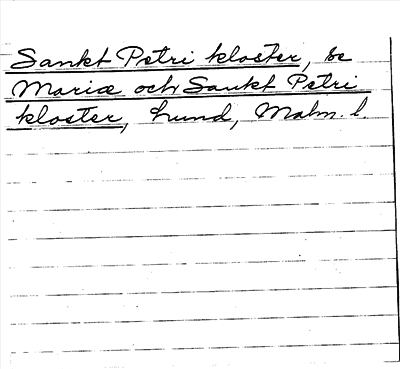 Sankt Petri kloster, se
Mariæ och Sankt Petri
kloster, Lund, Malm. l.